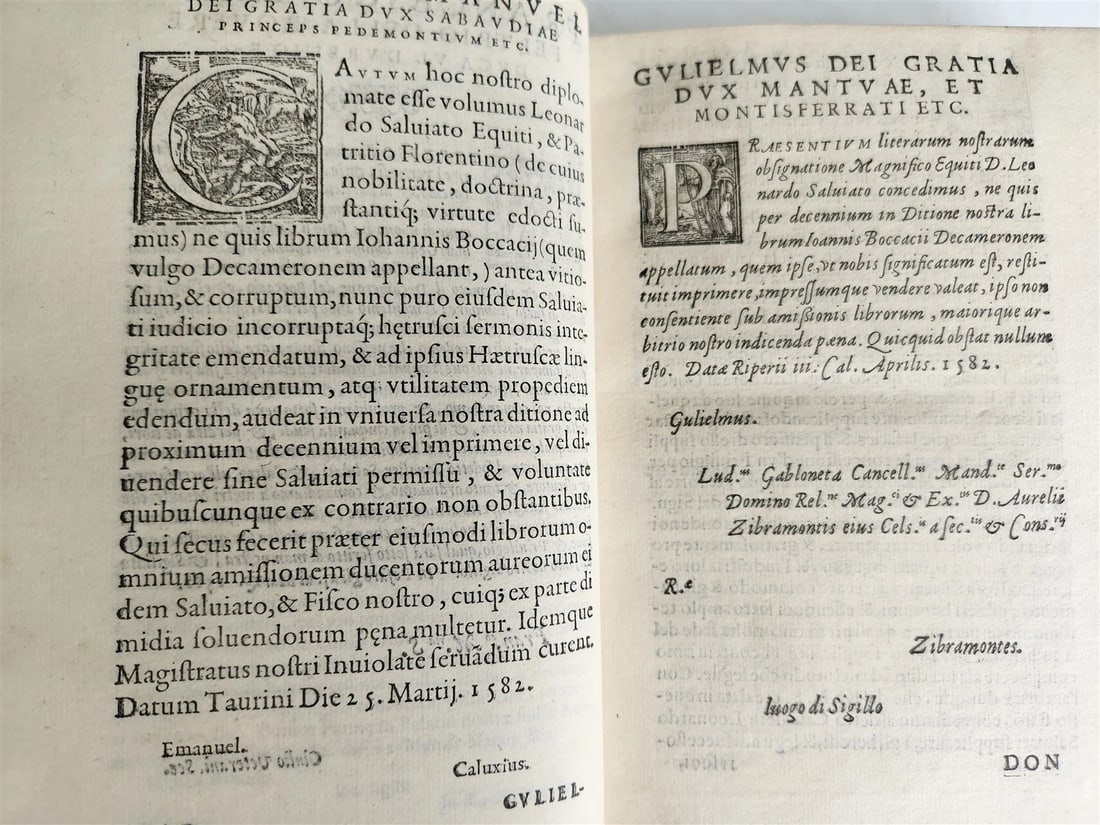 DEI GRATIA DVX SABAVDIAE
PRINCEPS PEDEMONTIVM ETC.
CAVTVM hoc noſtro diplo-
mate eſſe volumus Leonar
do Saluiato Equiti, & Pa-
tritio Florentino (de cuius
nobilitate, doctrina, præ-
ſtantiq; virtute edocti ſu-
mus) ne quis librum Iohannis Boccacij (quem
vulgo Decameronem appellant,) antea vitio-
ſum, & corruptum, nunc puro eiuſdem Saluia-
ti iudicio incorruptaq; hętruſci ſermonis inte-
gritate emendatum, & ad ipſius Hætruſcæ lin-
guę ornamentum, atq; vtilitatem propediem
edendum, audeat in vniuerſa noſtra ditione ad
proximum decennium vel imprimere, vel di-
uendere ſine Saluiati permiſſu, & voluntate
quibuſcunque ex contrario non obſtantibus.
Qui ſecus fecerit præter eiuſmodi librorum o-
mnium amiſſionem ducentorum aureorum ei
dem Saluiato, & Fiſco noſtro, cuiq; ex parte di
midia ſoluendorum pęna multetur. Idemque
Magiſtratus noſtri Inuiolatè ſeruãdum curent.
Datum Taurini Die 25. Martij. 1582.
Emanuel.
Caluxius.
GVLIEL-
GVLIELMVS DEI GRATIA
DVX MANTVAE, ET
MONTISFERRATI ETC.
PRAESENTIVM literarum noſtrarum
obſignatione Magnifico Equiti D. Leo
nardo Saluiato concedimus, ne quis
per decennium in Ditione noſtra li-
brum Ioannis Boccacii Decameronem
appellatum, quem ipſe, vt nobis ſignificatum eſt, reſti-
tuit imprimere, impreſſumque vendere valeat, ipſo non
conſentiente ſub amiſsionis librorum, maiorique ar-
bitrio noſtro indicenda pæna. Quicquid obſtat nullum
eſto. Datæ Riperii iii. Cal. Aprilis. 1582.
Gulielmus.
Lud.us Gabloneta Cancell.us Mand.te Ser.mo
Domino Rel.ne Mag.ci & Ex.tis D. Aurelii
Zibramontis eius Cels.is a sec.tis & Cons.rij
R.e
Zibramontes.
luogo di Sigillo
DON